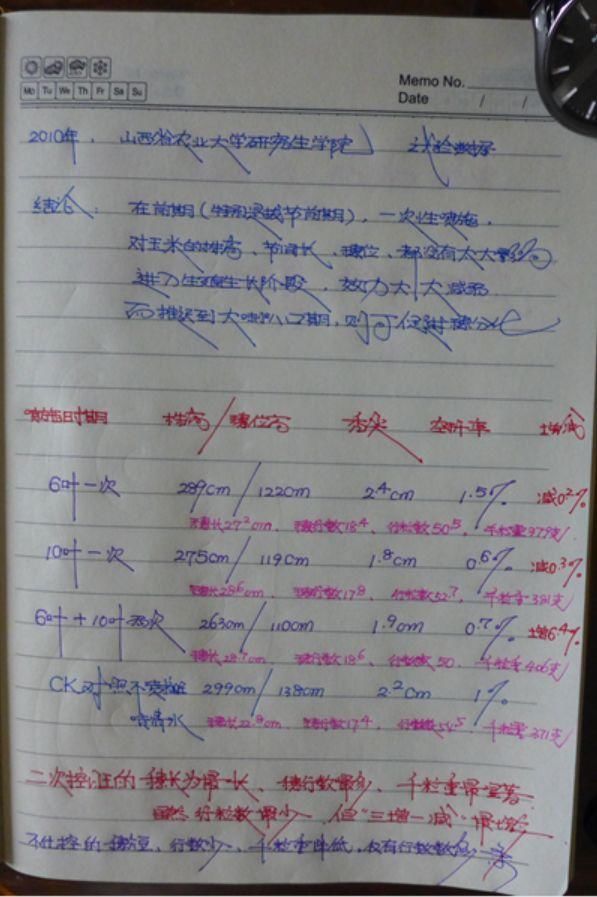 Memo No.
Mo Tu We Th Fr Sa Su
Date / /
2010年. 山西省农业大学研究生学院 试验数据
结论: 在前期(生殖器拔节前期), 一次性喷施,
对玉米的株高、节间长、穗位、都没有太大影响
进入生殖生长阶段, 效力大大减弱
而推迟到大喇叭口期, 则可促进穗分化
喷施时期 株高/穗位高 秃尖 空秆率 增减
6叶一次 289cm/122cm 2.4cm 1.5% 减0.2%
穗长27.2cm. 穗行数18.4、行粒数50.5、千粒重379克
10叶一次 275cm/119cm 1.8cm 0.6% 减0.3%
穗长28.6cm、穗行数17.8、行粒数52.7, 千粒重381克
6叶+10叶两次 263cm/110cm 1.9cm 0.7% 增6.4%
穗长28.7cm、穗行数18.6、行粒数50、千粒重406克
CK对照不喷施 299cm/138cm 2.2cm 1%
喷清水 穗长22.8cm、穗行数17.4、行粒数54.5、千粒重371克
二次控旺的穗长为最长、穗行数最多、千粒重最显著
虽然行粒数最少、但"三增一减"最增
不仕控的穗短、行数少、千粒重降低, 仅有行数数多一条